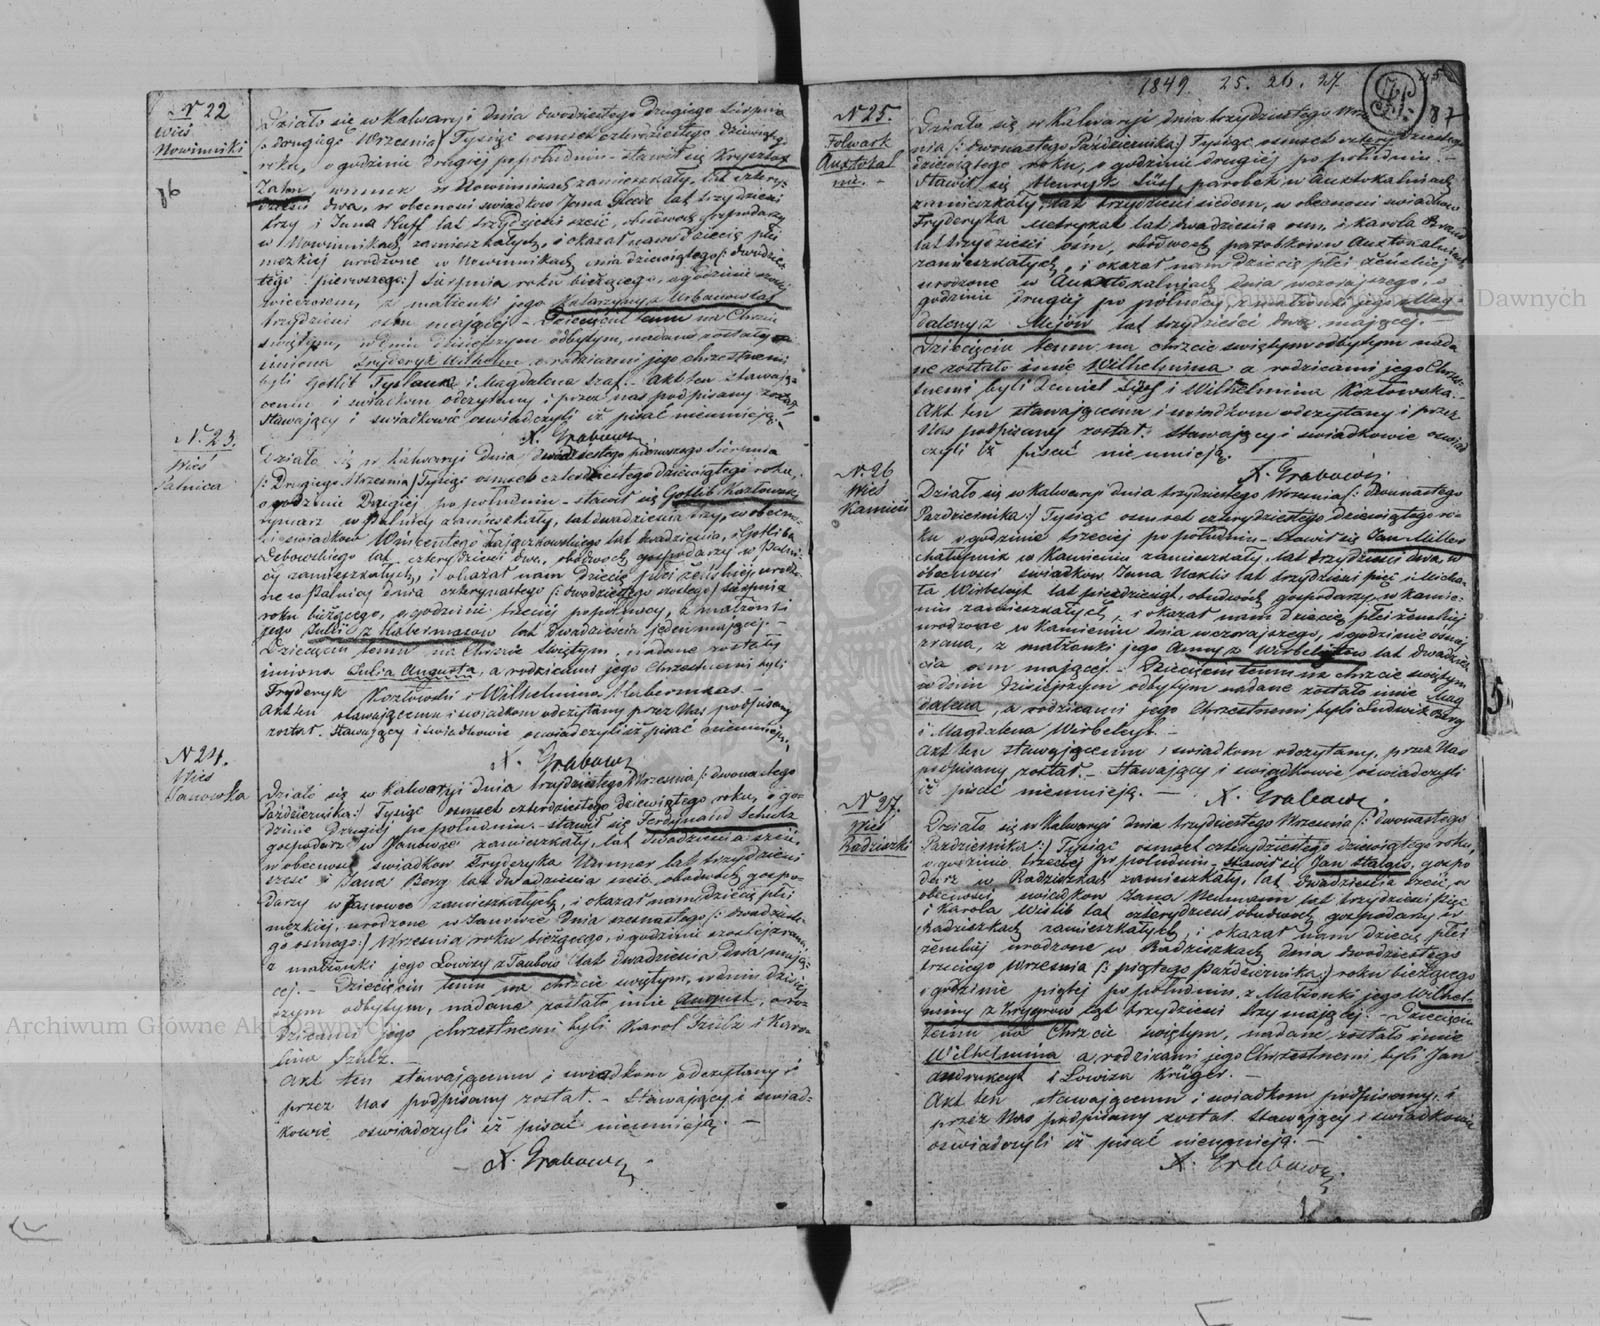 N 22
Wieś
Nowinniki
Działo się w Kalwaryi dnia dwudziestego drugiego Sierpnia
/: drugiego Września / Tysiąc osmset czterdziestego dziewiątego
roku, o godzinie drugiej po południu – stawił się Krysztof
Zahn, w Nowinnikach zamieszkały, lat cztery-
dzieści dwa, w obecności świadków Jana lat trzydzieści
trzy i Jana Huff lat trzydzieści sześć, obudwóch gospodarzy
w Nowinnikach zamieszkałych, i okazał nam dziecię płci
męzkiej urodzone w Nowinnikach dnia dziewiątego /: dwudzies-
tego pierwszego :/ Sierpnia roku bieżącego, o godzinie
wieczorem, z małżonki jego Katarzyny z Urbanowskich
trzydzieści osm mającej – Dziecięciu temu na Chrzcie
świętym, w dniu dzisiejszym odbytym, nadane zostały
imiona Fryderyk Wilhelm, a rodzicami jego chrzestnemi
byli Gotlib i Magdalena Szaf. – Akt ten stawają-
cemu i świadkom odczytany i przez nas podpisany został
Stawający i świadkowie oświadczyli iż pisać nieumieją.
X. Grabowski
N. 23.
Wieś
Palnica
Działo się w Kalwaryi dnia dwudziestego pierwszego Sierpnia
/: Drugiego Września / Tysiąc osmset czterdziestego dziewiątego roku,
o godzinie Drugiej po południu – stawił się Gotlib Kozłowski
rymarz w Palnicy zamieszkały, lat dwadzieścia trzy, w obecno-
ści świadków Wincentego lat dwadzieścia, i Gotliba
Lebowskiego lat czterydzieści dwa, obódwóch gospodarzy w Palni-
cy zamieszkałych, i okazał nam dziecię płci żeńskiej, urodzo-
ne w Palnicy dnia czternastego /: dwudziestego szóstego :/ Sierpnia
roku bieżącego, o godzinie trzeciej po północy, z małżonki
jego Julii z Habermasow lat Dwadzieścia jeden mającej. –
Dziecięciu temu na Chrzcie Świętym, nadane zostały
imiona Julia Augusta, a rodzicami jego Chrzestnemi byli
Fryderyk Kozłowski i Wilhelmina Habermas –
Akt ten stawającemu i świadkom odczytany przez Nas podpisany
został. Stawający i świadkowie oświadczyli iż pisać nieumieją.
X. Grabowski
N 24.
Wieś
Janowka
Działo się w Kalwaryi dnia trzydziestego Września /: dwunastego
Października :/ Tysiąc osmset czterdziestego dziewiątego roku, o go-
dzinie drugiej po południu. – stawił się Ferdynand Schultz
gospodarz w Janowce zamieszkały, lat dwadzieścia sześć,
w obecności świadków Fryderyka lat trzydzieści
sześć i Jana Berg lat dwadzieścia sześć, obudwóch gospo-
darzy w Janowce zamieszkałych, i okazał nam dziecię płci
męzkiej, urodzone w Janowce Dnia szesnastego /: dwudzieste-
go ósmego :/ Września roku bieżącego, o godzinie szóstej z rana,
z małżonki jego Lowizy z Taubów lat dwadzieścia dwa mają-
cej. – Dziecięciu temu na chrzcie świętym, w dniu dzisiej-
szym odbytym, nadane zostało imie August, a ro-
dzicami jego chrzestnemi byli Karol Szulz i Karo-
lina Szulz. –
Akt ten stawającemu i świadkom odczytany i
przez Nas podpisany został. – Stawający i świad-
kowie oświadczyli iż pisać nieumieją. –
X. Grabowski
1849. 25. 26. 27.
87
N 25.
Folwark
Auxtokal
nie. –
Działo się w Kalwaryi dnia trzydziestego Wrze-
nia /: dwunastego Października :/ Tysiąc osmset czterdziestego
dziewiątego roku, o godzinie drugiej po południu. –
Stawił się Henryk Süss, parobek w Auxtokalniach
zamieszkały, lat trzydzieści siedem, w obecności świadków
Fryderyka lat dwadzieścia osm, i Karola
lat trzydzieści osm, obódwóch parobków w Auxtokalniach
zamieszkałych, i okazał nam dziecię płci żeńskiej
urodzone w Auxtokalniach dnia wczorajszego, o
godzinie drugiej po północy, z małżonki jego Mag-
daleny z Mejów lat trzydzieści dwa mającej. –
Dziecięciu temu na chrzcie świętym odbytym nada
ne zostało imie Wilhelmina a rodzicami jego Chrze-
stnemi byli Daniel Süss i Wilhelmina Kozłowska. –
Akt ten stawającemu i świadkom odczytany i przez
Nas podpisany został. Stawający i świadkowie oświad
czyli iż pisać nieumieją.
X. Grabowski.
N. 26
Wieś
Kamień
Działo się w Kalwaryi dnia trzydziestego Września /: dwunastego
Października :/ Tysiąc osmset czterydziestego dziewiątego ro-
ku o godzinie trzeciej po południu – Stawił się Jan Miller
chałupnik w Kamieniu zamieszkały, lat trzydzieści dwa, w
obecności świadków Jana lat trzydzieści pięć i Micha-
ła Wirbeleyt lat piędziesiąt, obudwóch gospodarzy w Kamie-
niu zamieszkałych, i okazał nam dziecię płci żeńskiej
urodzone w Kamieniu dnia wczorajszego, o godzinie osmej
z rana, z małżonki jego Anny z Wirbelejtów lat dwadzie-
ścia osm mającej. – Dziecięciu temu na chrzcie świętym
w dniu dzisiejszym odbytym nadane zostało imie Mag
dalena, a rodzicami jego Chrzestnemi byli Ludwik Berg
i Magdalena Wirbeleyt. –
Akt ten stawającemu i świadkom odczytany, przez Nas
podpisany został. – Stawający i świadkowie oświadczyli
iż pisać nieumieją. –
X. Grabowski.
N. 27.
Wieś
Radziszki
Działo się w Kalwaryi dnia trzydziestego Września /: dwunastego
Października :/ Tysiąc osmset czterydziestego dziewiątego roku,
o godzinie trzeciej po południu – stawił się Jan gospo
darz w Radziszkach zamieszkały, lat dwadzieścia sześć, w
obecności świadków Jana Neumann lat trzydzieści pięć
i Karola Wistib lat czterydzieści obudwóch gospodarzy w
Radziszkach zamieszkałych, i okazał nam dziecię płci
żeńskiej urodzone w Radziszkach dnia dwudziestego
trzeciego Września /: piątego Października :/ roku bieżącego
o godzinie piątej po południu, z Małżonki jego Wilhel-
miny z Krygerów lat trzydzieści trzy mającej. – Dziecięciu
temu na Chrzcie świętym, nadane zostało imie
Wilhelmina a rodzicami jego Chrzestnemi byli Jan
Andrukeyt i Lowiza Krüger. –
Akt ten stawającemu i świadkom podpisany, i
przez Nas podpisany został. Stawający i świadkowie
oświadczyli iż pisać nieumieją. –
X. Grabowski.
5
Archiwum Główne Akt Dawnych
Archiwum Główne Akt Dawnych